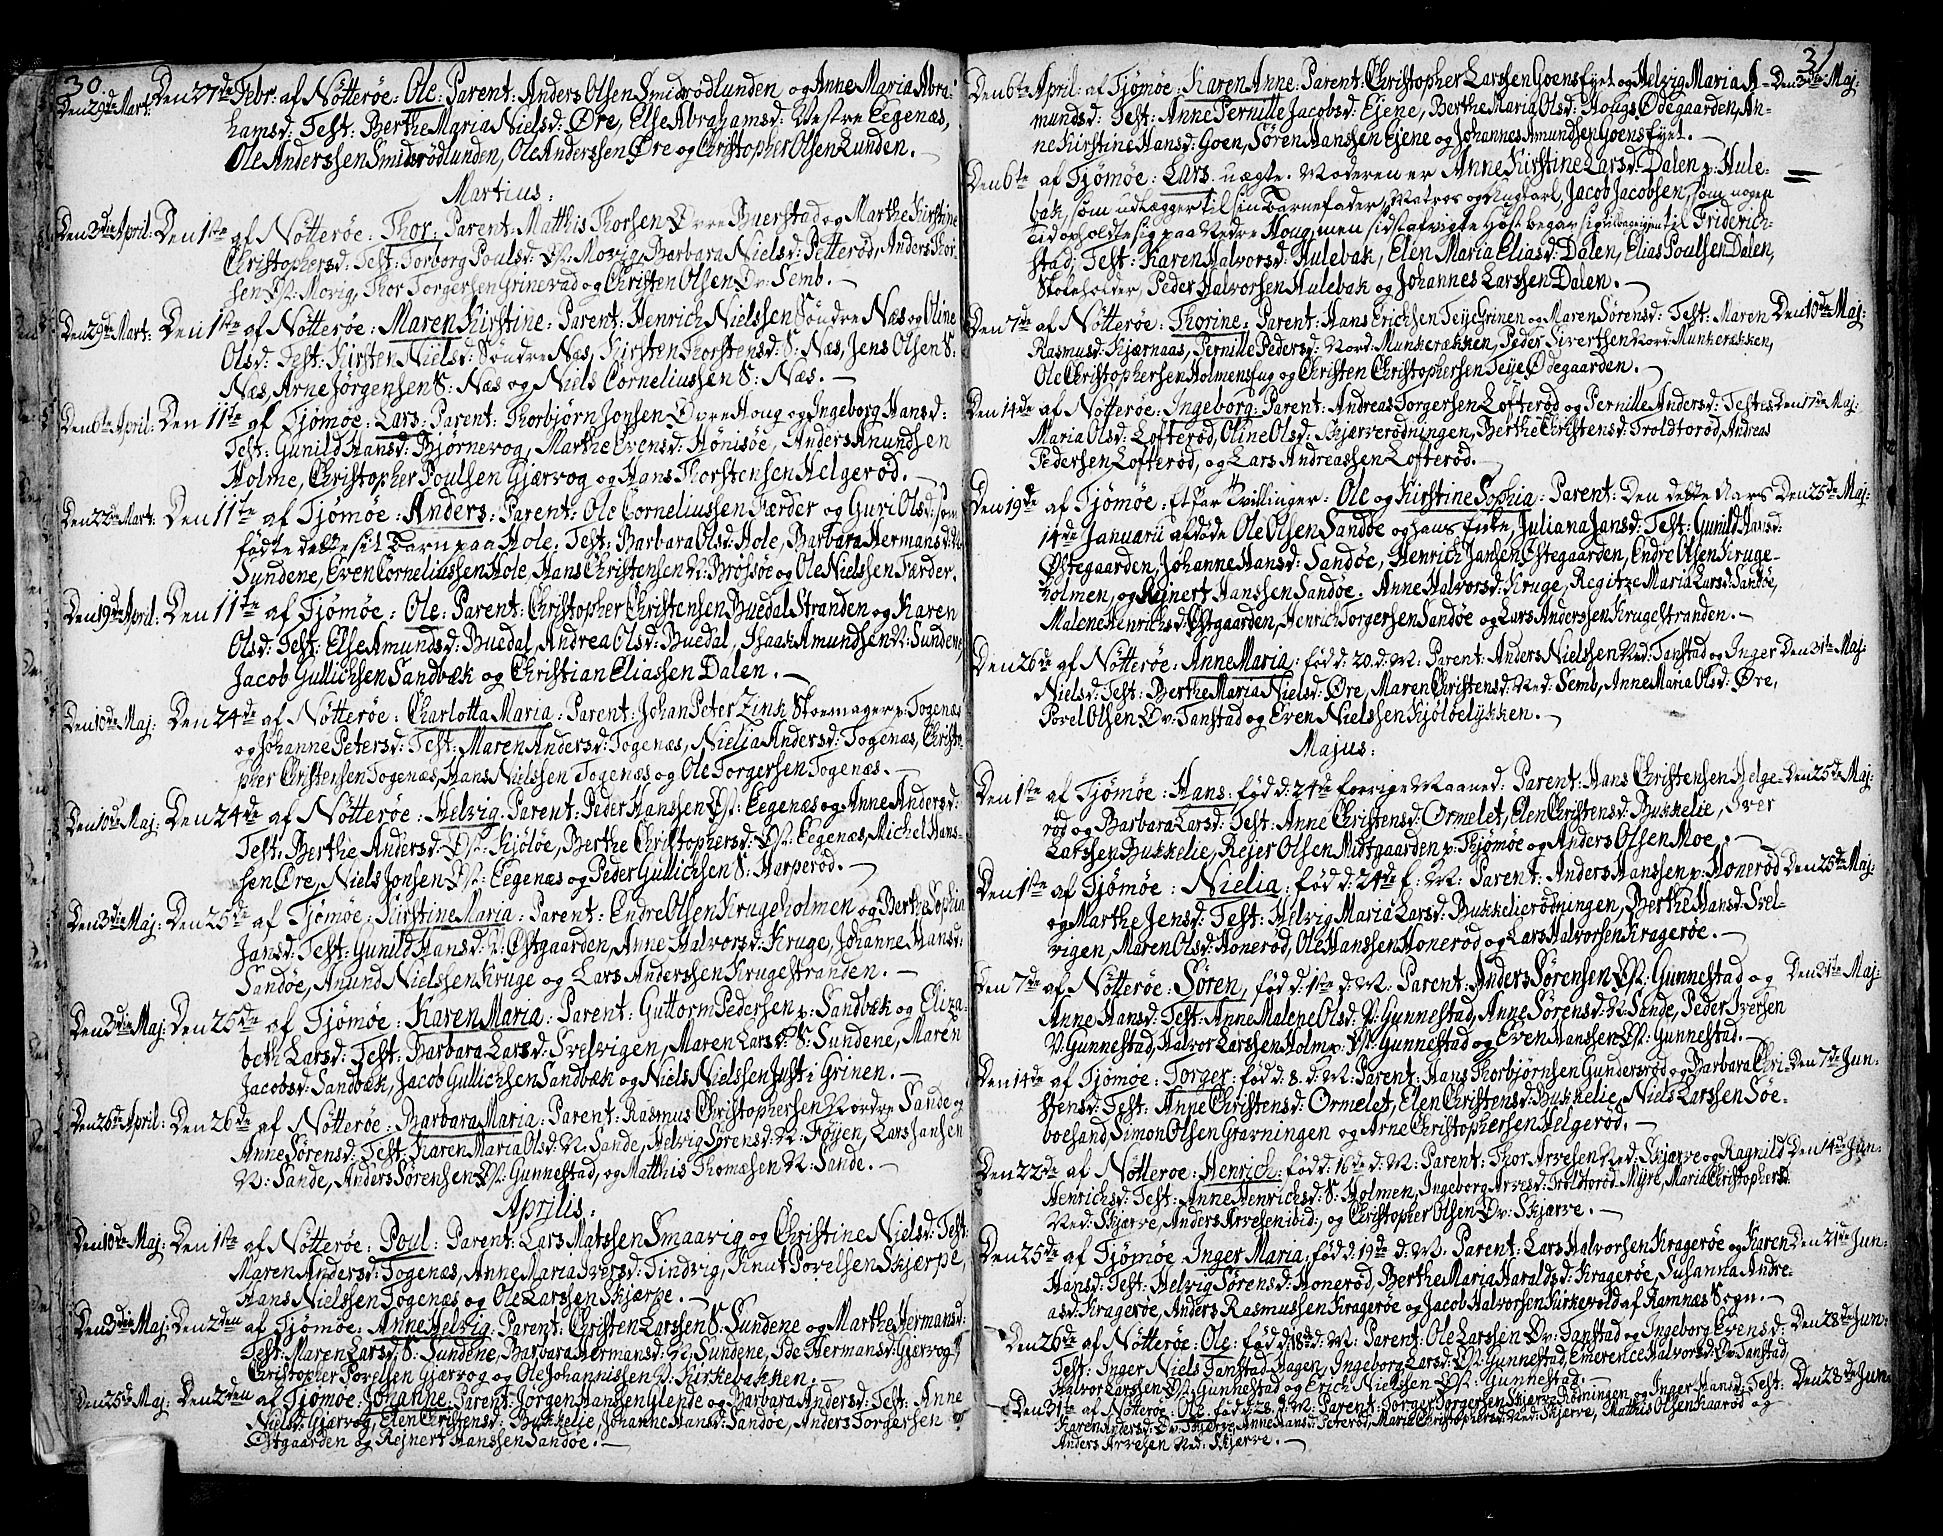 30.
Den 29de Mart: Den 27de Febr: af Nötteröe: Ole: Parent: Anders Olsen Smidsrödlunden og Anne Maria Abra-
hamsd: Test: Berthe Maria Nielsd: Öre, Else Abrahamsd: Vestre Eegenæs,
Ole Anderssen Smidsrödlunden, Ole Anderssen Öre og Christopher Olsen Lunden. —
Martius:
Den 3die April: Den 1ste af Nötteröe: Thor: Parent: Matthis Thorsen Övre Buerstad og Marthe Kirstine
Christophersd: Test: Torborg Poulsd: Öst: Movig, Barbara Nielsd: Petteröd, Anders Thor-
sen Öst: Movig, Thor Torgersen Grinerad og Christen Olsen Öv: Semb. —
Den 29de Mart: Den 1ste af Nötteröe: Maren Kirstine: Parent: Henrich Nielssen Söndre Næs og Oline
Olsd: Test: Kirsten Nielsd: Söndre Næs, Kirsten Thorstensd: S: Næs, Jens Olsen S:
Næs, Arne Jörgensen S: Næs og Niels Corneliussen S: Næs. —
Den 6te April: Den 11te af Tjömöe: Lars: Parent: Thorbjörn Jonsen Övre Houg og Ingeborg Hansd:
Test: Gunild Hansd: Bjørnevog, Marthe Evensd: Hönisöe, Anders Anundsen
Holme, Christopher Poulsen Gjærvog og Hans Thorstensen Helgeröd. —
Den 22de Mart: Den 11te af Tjömöe: Anders: Parent: Ole Corneliussen Færder og Guri Olsd: som
födte dette sit Barn paa Hole: Test: Barbara Olsd: Hole, Barbara Hermansd: N:
Sundene, Even Corneliussen Hole, Hans Christensen N: Brössöe og Ole Nielssen Færder.
Den 19de April: Den 11te af Tjömöe: Ole: Parent: Christopher Christensen Buedal Stranden og Karen
Olsd: Test: Else Amundsd: Buedal, Andrea Olsd: Buedal, Isaak Amundsen N: Sundene,
Jacob Gullichsen Sandbæk og Christian Eliassen Dalen. —
Den 10de Maj: Den 24de af Nötteröe: Charlotta Maria: Parent: Johan Peter Zink Skoemager p: Togenæs
og Johanne Petersd: Test: Maren Andersd: Togenæs, Nielia Andersd: Togenæs, Christo-
pher Christensen Togenæs, Hans Nielssen Togenæs og Ole Torgersen Togenæs. —
Den 10de Maj: Den 24de af Nötteröe: Helvig: Parent: Peder Hanssen Öst: Eegenæs og Anne Andersd:
Test: Berthe Andersd: Öst: Kjölöe, Berthe Christophersd: Öst: Eegenæs, Michel Hans-
sen Öre, Niels Jonsen Öst: Eegenæs og Peder Gullichsen S: Harperöd. —
Den 3die Maj: Den 25de af Tjömöe: Kirstine Maria: Parent: Endre Olsen Krugeholmen og Berthe Sophia
Jansd: Test: Gunild Hansd: N: Östgaarden, Anne Halvorsd: Kruge, Johanne Hansd:
Sandöe, Anund Nielssen Kruge og Lars Anderssen Krugestranden. —
Den 3die Maj: Den 25de af Tjömöe: Karen Maria: Parent: Guttorm Pedersen p: Sandbæk og Eliza-
beth Larsd: Test: Barbara Larsd: Svelvigen, Maren Larsd: S: Sundene, Maren
Jacobsd: Sandbæk, Jacob Gullichsen Sandbæk og Niels Nielssen Just i Grinen. —
Den 26de April: Den 26de af Nötteröe: Barbara Maria: Parent: Rasmus Christophersen Nordre Sande og
Anne Sörensd: Test: Karen Maria Olsd: N: Sande, Helvig Sörensd: N: Föyen, Lars Jansen
N: Sande, Anders Sörensen Öst: Gunnestad, og Matthis Thomæsen N: Sande. —
Aprilis:
Den 10de Maj: Den 1ste af Nötteröe: Poul: Parent: Lars Matssen Smaavig og Christine Nielsd: Test:
Maren Andersd: Togenæs, Anne Maria Iversd: Tindvig, Knut Povelsen Skjærpe,
Hans Nielssen Togenæs og Ole Larssen Skjærpe. —
Den 3die Maj: Den 2den af Tjömöe: Anne Helvig: Parent: Christen Larssen S: Sundene og Marthe Hermansd:
Test: Maren Larsd: S: Sundene, Barbara Hermansd: N: Sundene, Ide Hermansd: Gjærvog,
Christopher Povelsen Gjærvog og Ole Johannissen V: Kirkebakken. —
Den 25de Maj: Den 2den af Tjömöe: Johanne: Parent: Jörgen Hansen Glende og Barbara Andersd: Test: Anne
Nielsd: Gjærvog, Elen Christensd: Bukkelie, Johanne Hansd: Sandöe, Anders Torgersen
Östgaarden og Rejnert Hanssen Sandöe. —
31
Den 6te April: af Tjömöe: Karen Anne: Parent: Christopher Larssen Goenseyet og Helvig Maria A- Den 3die Maj:
mundsd: Test: Anne Pernille Jacobsd: Ejene, Berthe Maria Olsd: Hougs Ödegaarden, An-
ne Kirstine Hansd: Goen, Sören Hanssen Ejene og Johannes Amundsen Goenseyet. —
Den 6te af Tjömöe: Lars uægte. Moderen er Anne Kirstine Larsd: Dalen p: Hule-
bak, som udlægger til sin Barnefader, Matros og Ungkarl Jacob Jacobsen, som nogen
Tid opholdte sig paa Nedre Houg, men sidstafvigte Höst begav sig tilbage igjen til Friderich-
stad, Test: Karen Halvorsd: Hulebak, Elen Maria Eliasd: Dalen, Elias Poulsen Dalen,
Skoleholder, Peder Halvorsen Hulebak og Johannes Larssen Dalen. —
Den 7de af Nötteröe: Thorine: Parent: Hans Erichsen Teye Grinen og Maren Sörensd: Test: Maren Den 10de Maj:
Rasmusd: Kjærnaas, Pernille Pedersd: Nord: Munkerækken, Peder Sivertsen Nord: Munkerækken,
Ole Christophersen Holmensfug og Christen Christophersen Teye Ödegaarden. —
Den 14de af Nötteröe: Ingeborg: Parent: Andreas Torgersen Lofteröd og Pernille Andersd: Testes Den 17de Maj:
Maria Olsd: Lofteröd, Oline Olsd: Skjærverödningen, Berthe Christensd: Troldtoröd, Andreas
Pedersen Lofteröd, og Lars Andreassen Lofteröd. —
Den 19de af Tjömöe: Et Par Tvillinger: Ole og Kirstine Sophia: Parent: Den dette Aars Den 25de Maj:
14de Januarii afdöde Ole Olsen Sandöe og hans Enke, Juliana Jansd: Test: Gunild Hansd:
Östegaarden, Johanne Hansd: Sandöe, Henrich Jansen Östegaarden, Endre Olsen Kruge-
holmen, og Rejnert Hanssen Sandöe. Anne Halvorsd: Kruge, Regitze Maria Larsd: Sandöe,
Malene Henrichsd: Östgaarden, Henrich Torgersen Sandöe og Lars Anderssen Krugestranden. —
Den 26de af Nötteröe: Anne Maria: föd d: 20. d: M: Parent: Anders Nielssen Ned: Tanstad og Inger Den 31te Maj:
Nielsd: Test: Berthe Maria Nielsd: Öre, Maren Christensd: Ned: Semb, Anne Maria Olsd: Öre,
Povel Olsen Öv: Tanstad og Even Nielssen Kjölbelykken. —
Majus:
Den 1ste af Tjömöe: Hans: föd d: 24de forrige Maaned: Parent: Hans Christensen Helge- Den 25de Maj:
röd og Barbara Larsd: Test: Anne Christensd: Ormelet, Elen Christensd: Bukkelie, Iver
Larssen Bukkelie, Rejer Olsen Midtgaarden p: Tjömöe og Anders Olsen Moe. —
Den 1ste af Tjömöe: Nielia: föd d: 24de f: M: Parent: Anders Hanssen p: Honeröd Den 25de Maj:
og Marthe Jensd: Test: Helvig Maria Larsd: Bukkelierödningen, Berthe Hansd: Svel-
vigen, Maren Olsd: Honeröd, Ole Hanssen Honeröd og Lars Halvorsen Krageröe. —
Den 7de af Nötteröe: Sören, föd d: 1ste d: M: Parent: Anders Sörensen Öst: Gunnestad og Den 31te Maj:
Anne Hansd: Test: Anne Malene Olsd: V: Gunnestad, Anne Sörensd: N: Sande, Peder Iversen
V: Gunnestad, Halvor Larssen Holm p: Öst: Gunnestad og Even Hanssen Öst: Gunnestad.
Den 14de af Tjömöe: Torger: föd d: 8. d: M: Parent: Hans Thorbjörnsen Gunderöd og Barbara Chri- Den 7de Jun:
stensd: Test: Anne Christensd: Ormelet, Elen Christensd: Bukkelie, Niels Larssen Söe-
boesand, Simon Olsen Gravningen og Arne Christophersen Helgeröd. —
Den 22de af Nötteröe: Henrich: föd d: 16de d: M: Parent: Thor Arvesen Ned: Skjærve og Ragnild Den 14de Jun:
Henrichsd: Test: Anne Henrichsd: S: Holmen, Ingeborg Arvesd: Troldtoröd Myre, Maria Christophersd
Ned: Skjærve, Anders Arvesen ibid:, og Christopher Olsen Öv: Skjærve. —
Den 25de af Tjömöe, Inger Maria: föd d: 19de d: M: Parent: Lars Halvorsen Krageröe og Karen Den 21de Jun:
Hansd: Test: Helvig Sörensd: Honeröd, Berthe Maria Haraldsd: Krageröe, Susanna Andre-
asd: Krageröe, Anders Rasmussen Krageröe og Jacob Halvorsen Kirkevold af Ramnæs Sogn. —
Den 26de af Nötteröe: Ole: föd d: 18de d: M: Parent: Ole Larssen Öv: Tanstad og Ingeborg Evensd: Den 28de Jun:
Test: Inger Niels Tanstad Hagen, Ingeborg Larsd: Öst: Gunnestad, Emerence Halvorsd: Öv: Tanstad,
Halvor Larssen Öst: Gunnestad og Erich Nielssen Öst: Gunnestad. —
Den 31te af Nötteröe: Ole: föd d: 28. d: M: Parent: Torger Torgersen Skjærve Rödningen og Inger Hansd: Test: Den 28de Jun:
Karen Andersd: Öv: Skjærve, Anne Hansd: Peteröd, Maria Christophersd: Ned: Skjærve, Mathis Olsen Kaaröd og
Anders Arvesen Ned: Skjærve. —